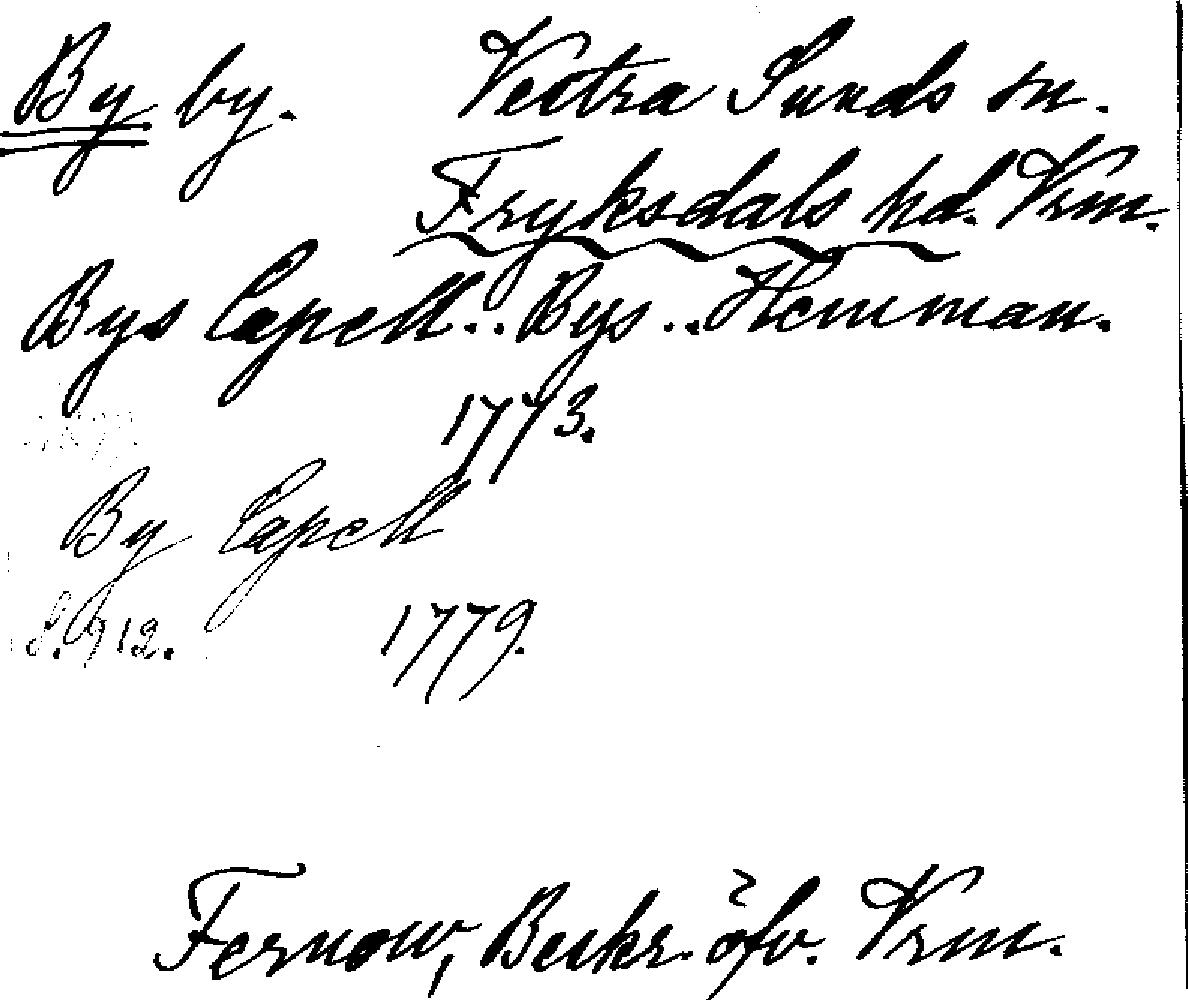 By by. Vestra Sunds sn.
Fryksdals hd. Vrm.
Bys Capell.. Bys .. Hemman.
1773.
By Capell
S. 912. 1779.
Fernow, Beskr. öfv. Vrm.